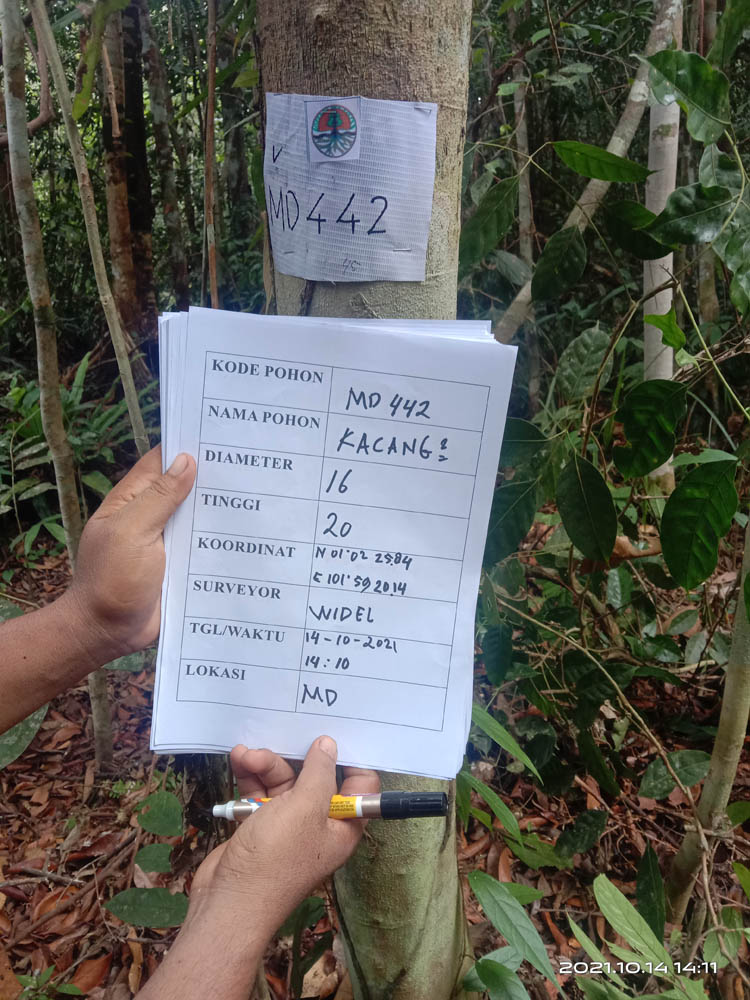 MD 442
KODE POHON MD 442
NAMA POHON KACANG²
DIAMETER 16
TINGGI 20
KOORDINAT N 01°02 25,84
E 101°59 20.14
SURVEYOR WIDEL
TGL/WAKTU 14-10-2021
14:10
LOKASI MD
2021.10.14 14:11